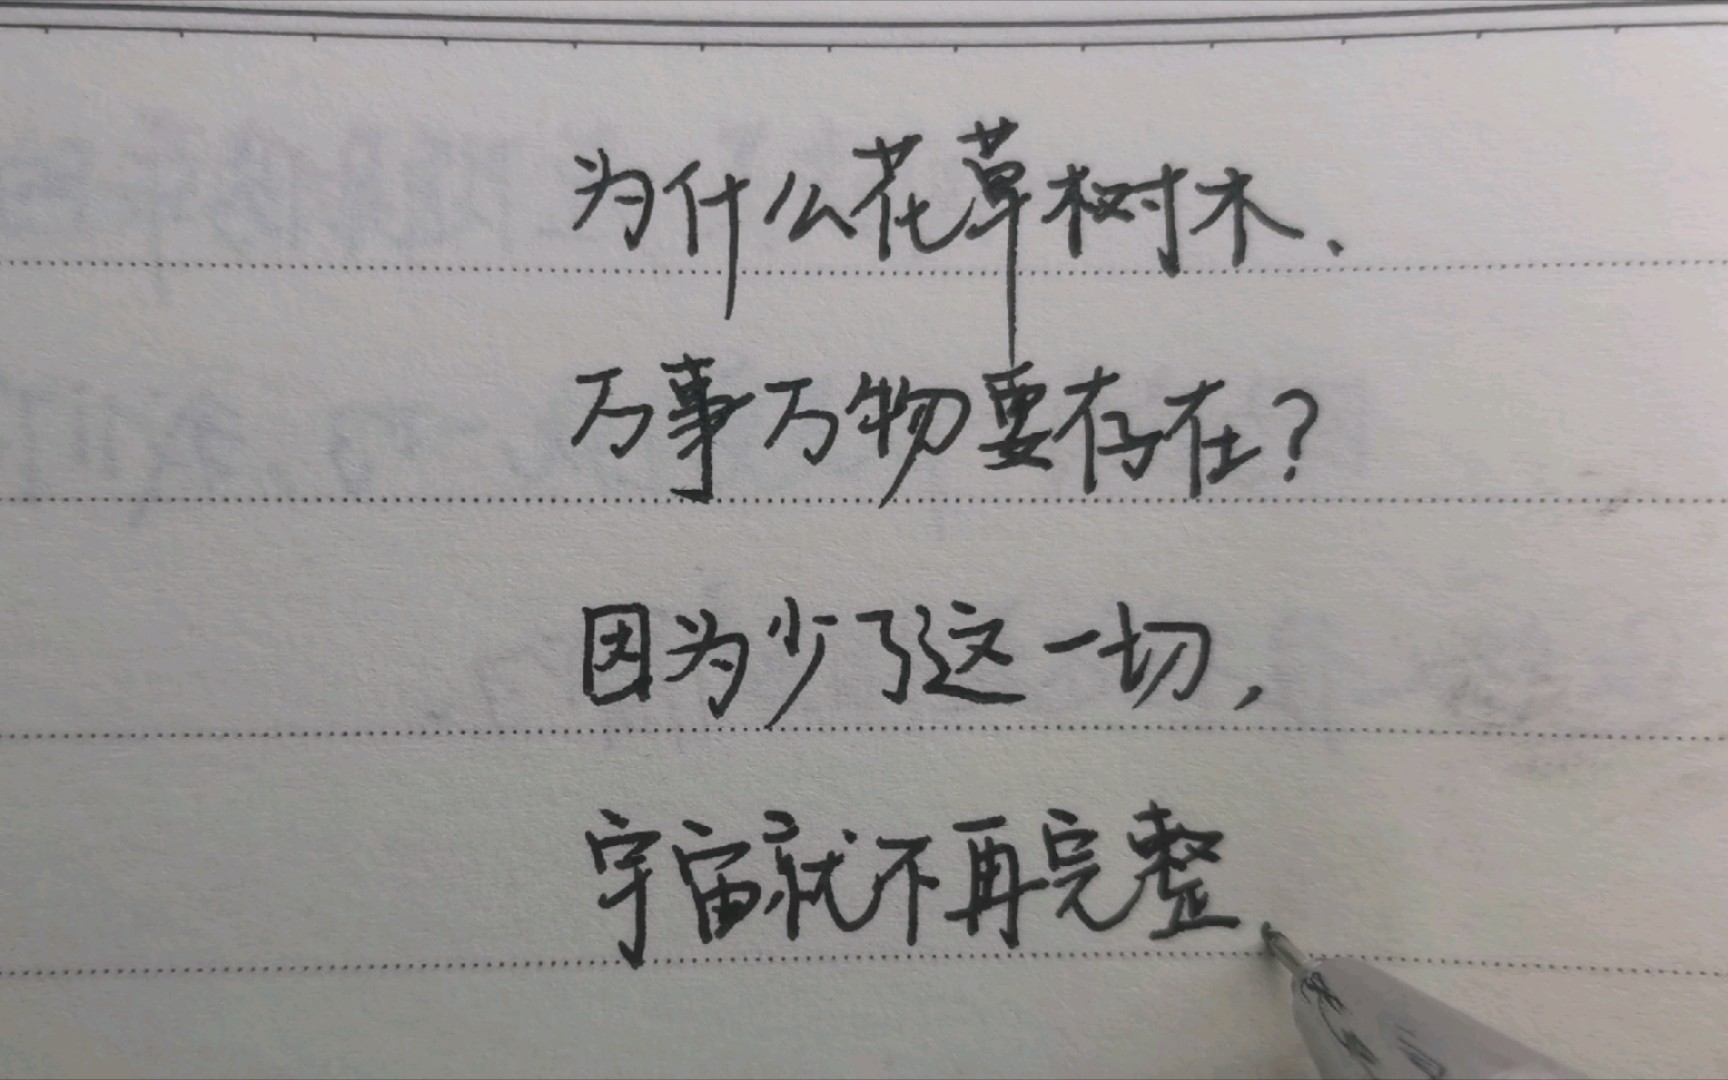 为什么花草树木、
万事万物要存在?
因为少了这一切,
宇宙就不再完整